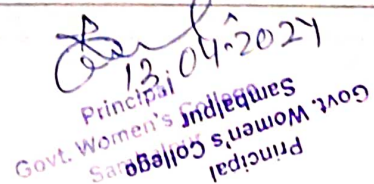 13.04.2024
Principal
Govt. Women's College
Sambalpur
Principal
Govt. Women's College
Sambalpur